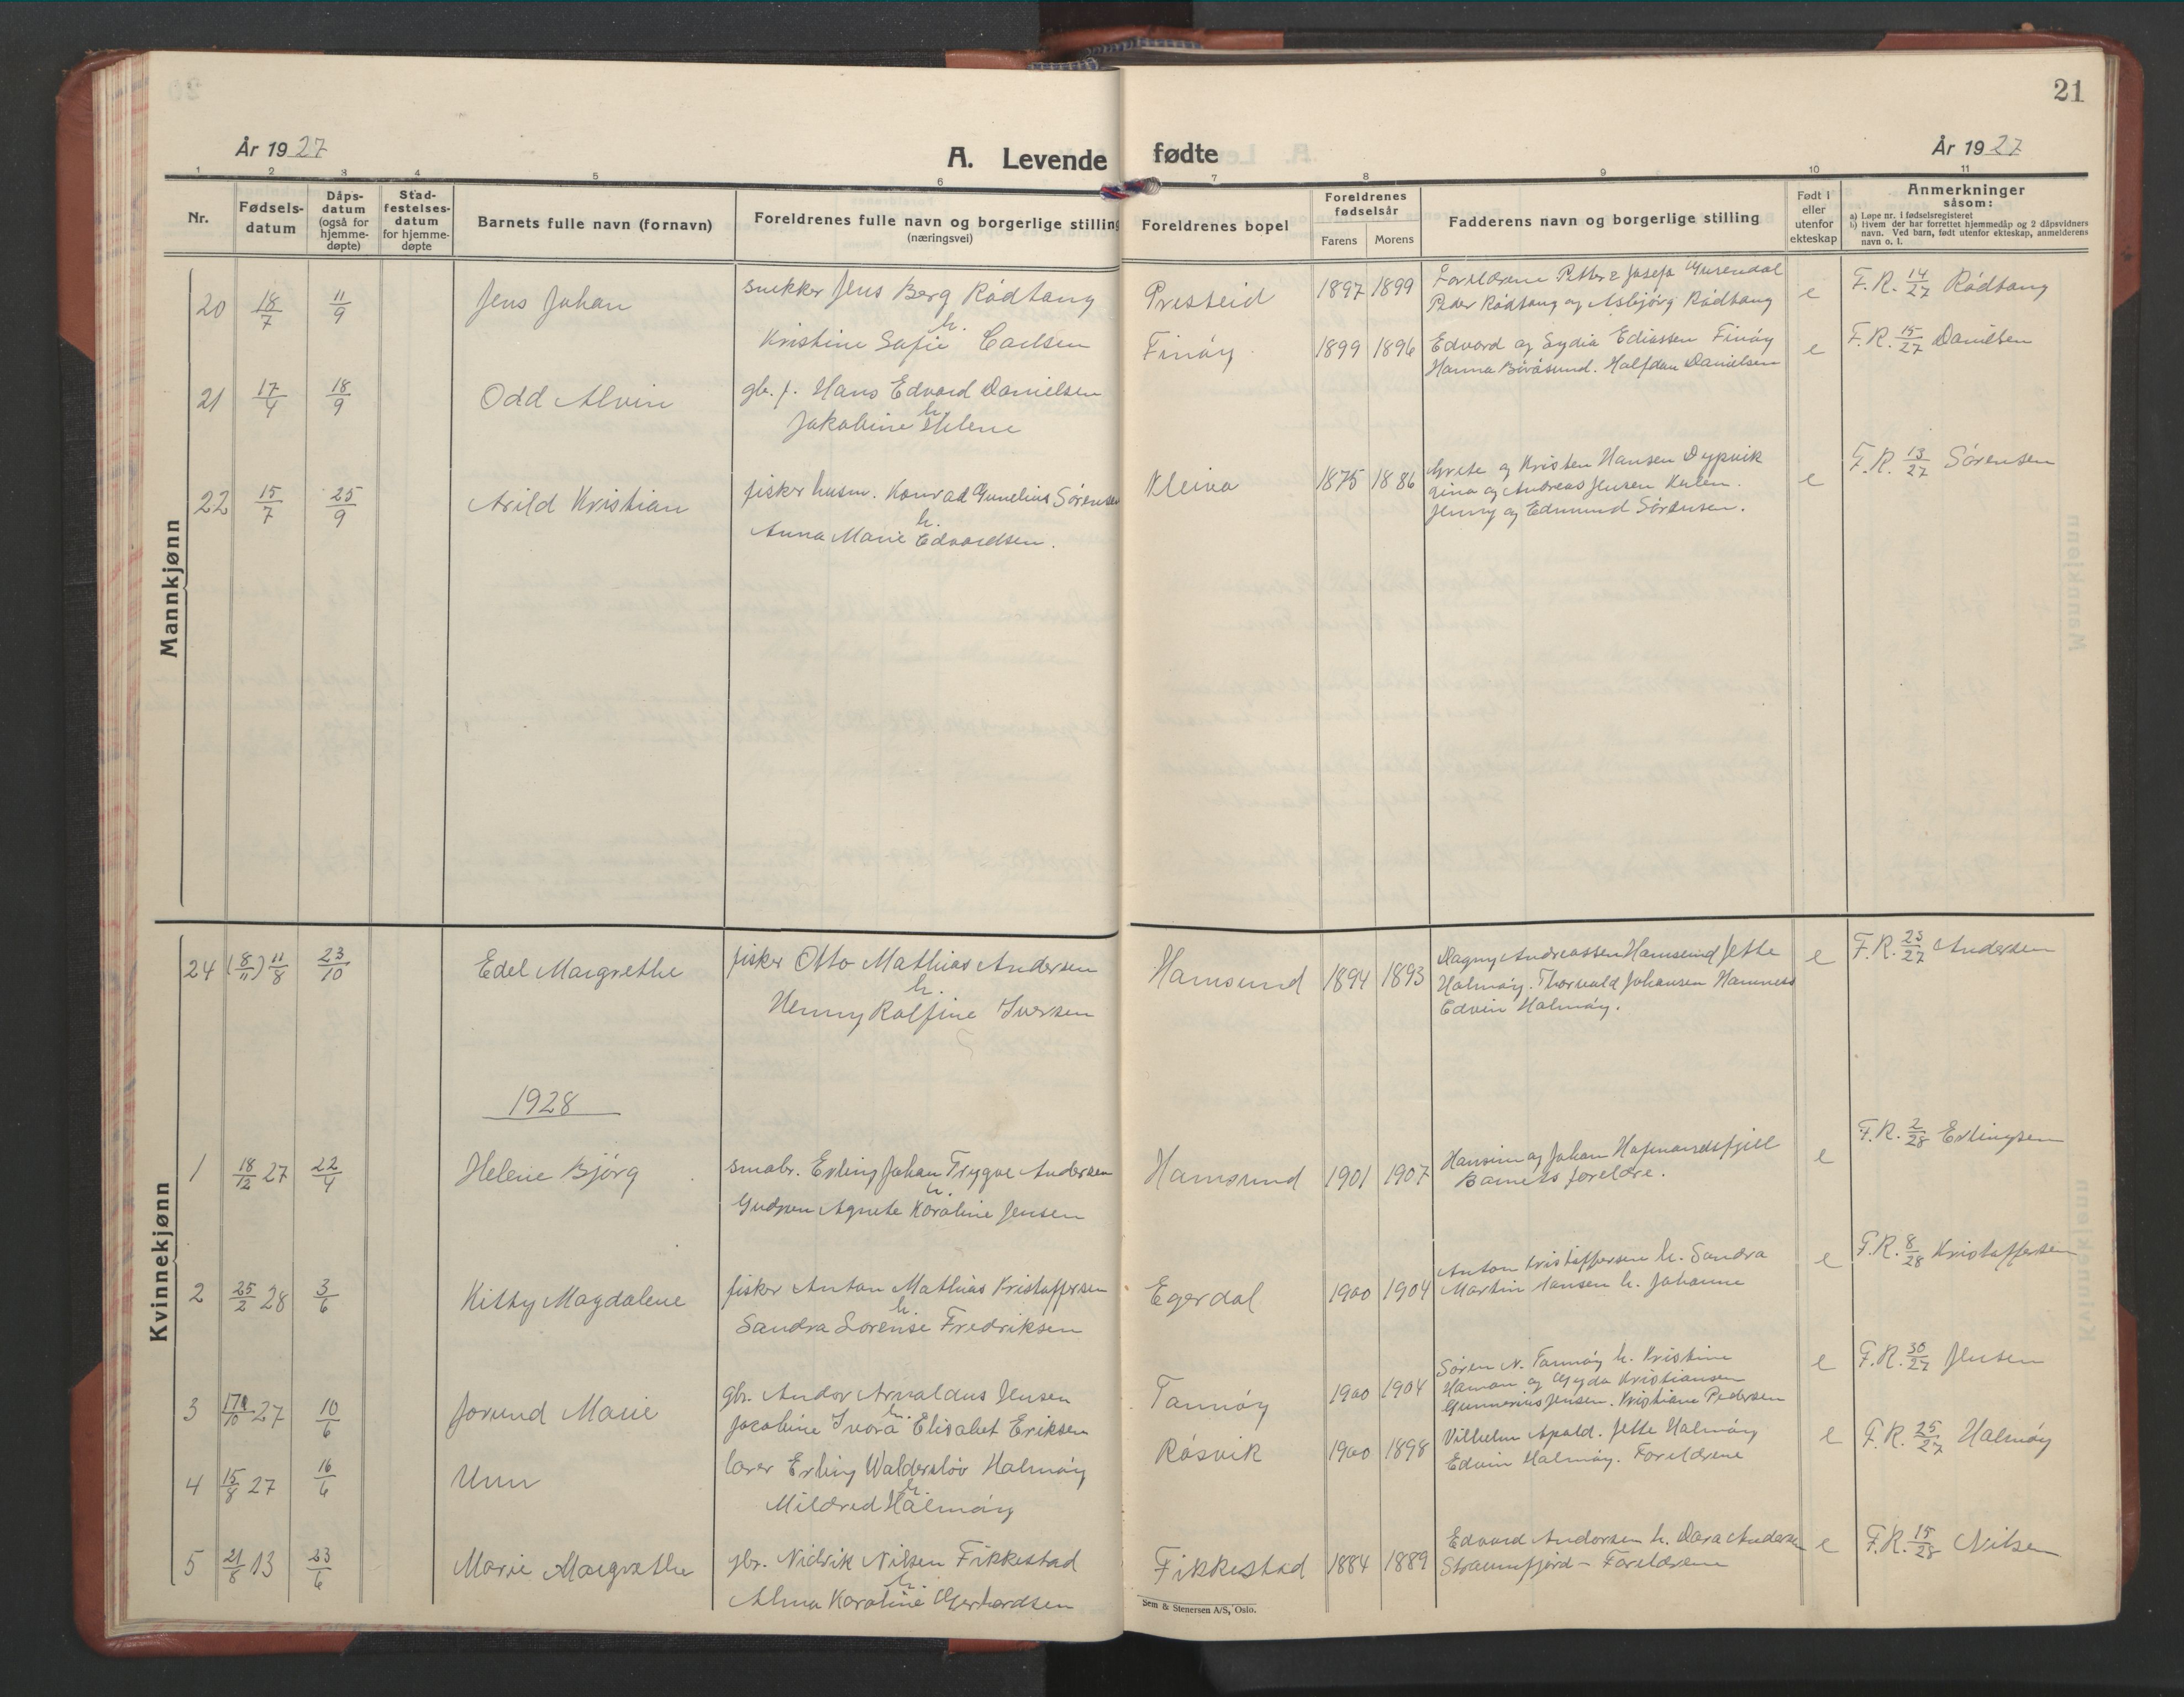 21
År 1927
A. Levende fødte
År 1927
1 2 3 4 5 6 7 8 9 10 11
Nr.
Fødsels-
datum
Dåps-
datum
(også for
hjemme-
døpte)
Stad-
festelses-
datum
for hjemme-
døpte
Barnets fulle navn (fornavn)
Foreldrenes fulle navn og borgerlige stilling
(næringsvei)
Foreldrenes bopel
Foreldrenes
fødselsår
Farens Morens
Fadderens navn og borgerlige stilling
Født i
eller
utenfor
ekteskap
Anmerkninger
såsom:
a) Løpe nr. i fødselsregisteret
b) Hvem der har forrettet hjemmedåp og 2 dåpsvidners
navn. Ved barn, født utenfor ekteskap, anmelderens
navn o. l.
Mannkjønn
20 18/7 11/9 Jens Johan
snekker Jens Berg Rådtang
h.
Kristine Sofie Carlsen
Presteid 1897 1899
Foreldrene Petter & Josefa
Peder Rådtang og Asbjörg Rådtang
e F.R. 14/27 Rådtang
21 17/4 18/9 Odd Alvin
gb. f. Hans Edvard Danielsen
h.
Jakobine Helene
Finöy 1899 1896
Edvard og Lydia Ediassen Finöy
Hanna. Halfdan Danielsen
e F.R. 15/27 Danielsen
22 15/7 25/9 Arild Kristian
fisker husm. Konrad Gunelius Sörensen
h.
Anna Marie Edvardsen.
Kleiva 1875 1886
Grete og Kristen Hansen Dypvik
Lina og Andreas Jensen
Jenny og Edmund Sörensen.
e F.R. 13/27 Sörensen
Kvinnekjønn
24 (8/11) 11/8 23/10 Edel Margrethe
fisker Otto Mathias Andersen
h.
Henny Rolfine Iversen
Hamsund 1894 1893
Dagny Andreassen Hamsund Jette
Halmöy. Thorvald Johansen Hamnes
Edvin Halmöy.
e F.R. 23/27 Andersen
1928
1 18/12 27 22/4 Helene Björg
småbr. Erling Johan Trygve Andersen
h.
Gudrun Agnete Karoline Jensen
Hamsund 1901 1907
Hansine og Johan Hafmandsfjell
Barnets foreldre.
e F.R. 2/28 Erlingsen
2 25/2 28 3/6 Kitty Magdalene
fisker Anton Mathias Kristoffersen
h.
Sandra Lorense Fredriksen
Egerdal 1900 1904
Anton Kristoffersen h. Sandra
Martin Hansen h. Johanne
e F.R. 8/28 Kristoffersen
3 17/10 27 10/6 Jorund Marie
gbr. Andor Arnoldus Jensen
h.
Jacobine Ivora Elisabet Eriksen
Tannöy 1900 1904
Sören N. Tannöy h. Kristine
Haman og Gyda Kristiansen
Gunnerius Jensen. Kristiane Pedersen
e F.R. 30/27 Jensen
4 15/8 27 16/6 Unn
lærer Erling Walderslöv Halmöy
h.
Mildred Halmöy
Råsvik 1900 1898
Vilhelm Apold. Jette Halmöy
Edvin Halmöy. Foreldrene
e F.R. 25/27 Halmöy
5 21/8 13 23/6 Marie Margrethe
gbr. Nidrik Nilsen Fikkestad
h.
Alma Karoline Gerhardsen
Fikkestad 1884 1889
Edvard Andersen h. Dora Andersen
Straumfjord - Foreldrene
e F.R. 15/28 Nilsen
Sem & Stenersen A/S, Oslo.